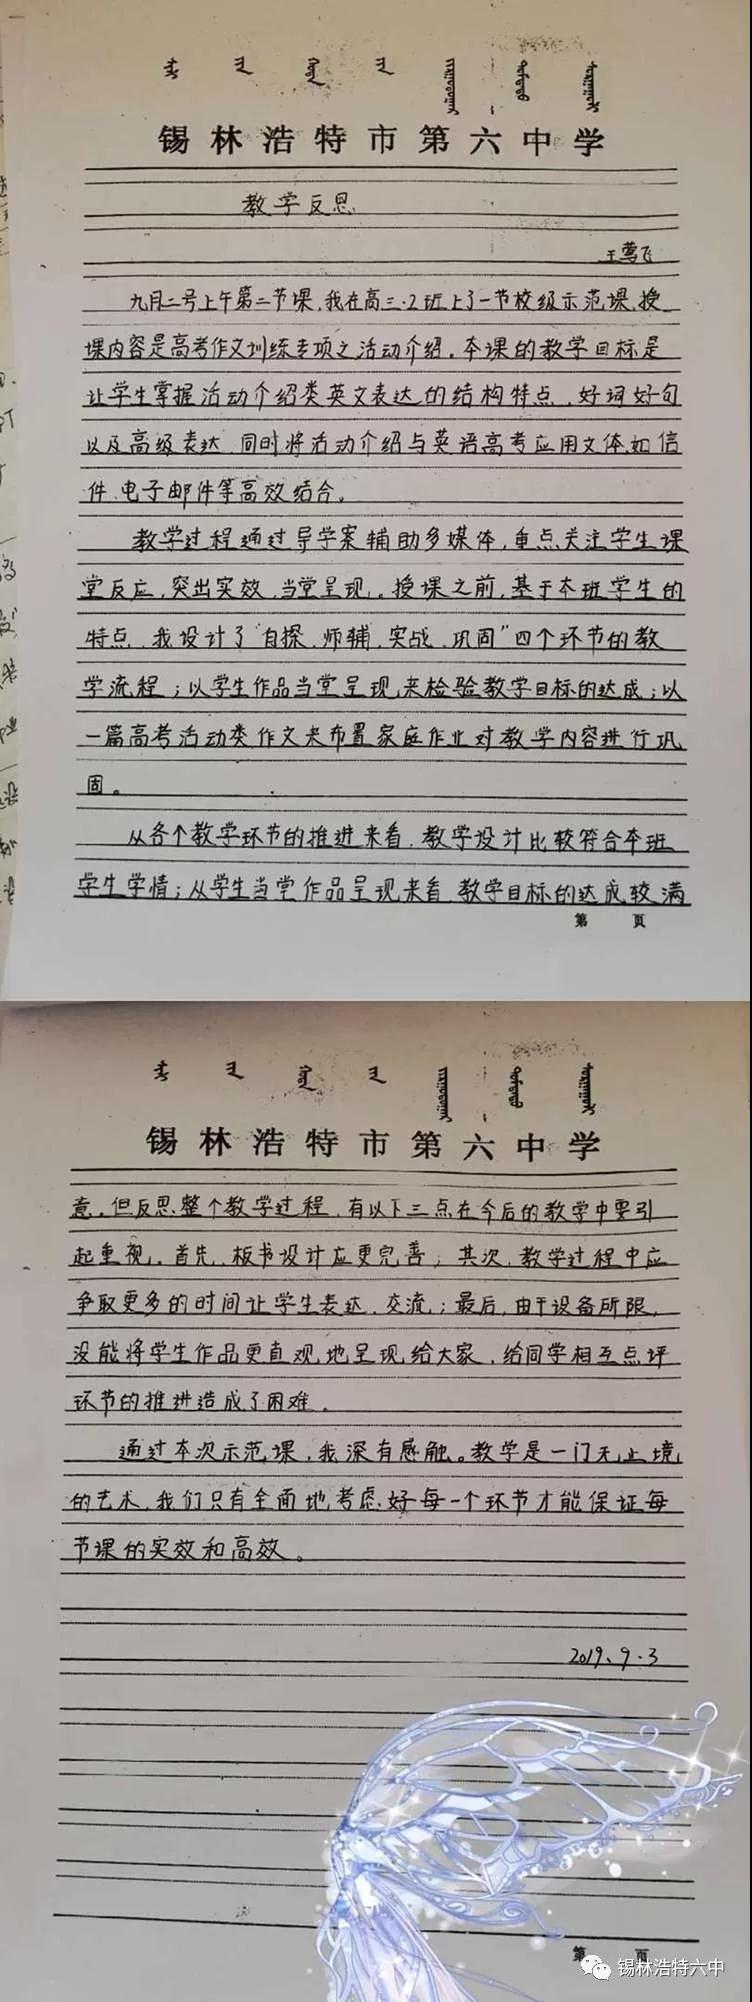 锡林浩特市第六中学
教学反思
王莺飞
九月二号上午第二节课,我在高三·2班上了一节校级示范课,授
课内容是高考作文训练专项之活动介绍。本课的教学目标是
让学生掌握活动介绍类英文表达的结构特点、好词好句
以及高级表达,同时将活动介绍与英语高考应用文体,如信
件、电子邮件等高效结合。
教学过程通过导学案辅助多媒体,重点关注学生课
堂反应,突出实效,当堂呈现。授课之前,基于本班学生的
特点,我设计了“自探、师辅、实战、巩固”四个环节的教
学流程;以学生作品当堂呈现来检验教学目标的达成;以
一篇高考活动类作文来布置家庭作业对教学内容进行巩
固。
从各个教学环节的推进来看,教学设计比较符合本班
学生学情;从学生当堂作品呈现来看,教学目标的达成较满
第 页
锡林浩特市第六中学
意。但反思整个教学过程,有以下三点在今后的教学中要引
起重视。首先,板书设计应更完善;其次,教学过程中应
争取更多的时间让学生表达、交流;最后,由于设备所限,
没能将学生作品更直观地呈现给大家,给同学相互点评
环节的推进造成了困难。
通过本次示范课,我深有感触。教学是一门无止境
的艺术,我们只有全面地考虑好每一个环节才能保证每
节课的实效和高效。
2019、9·3
第 页
锡林浩特六中